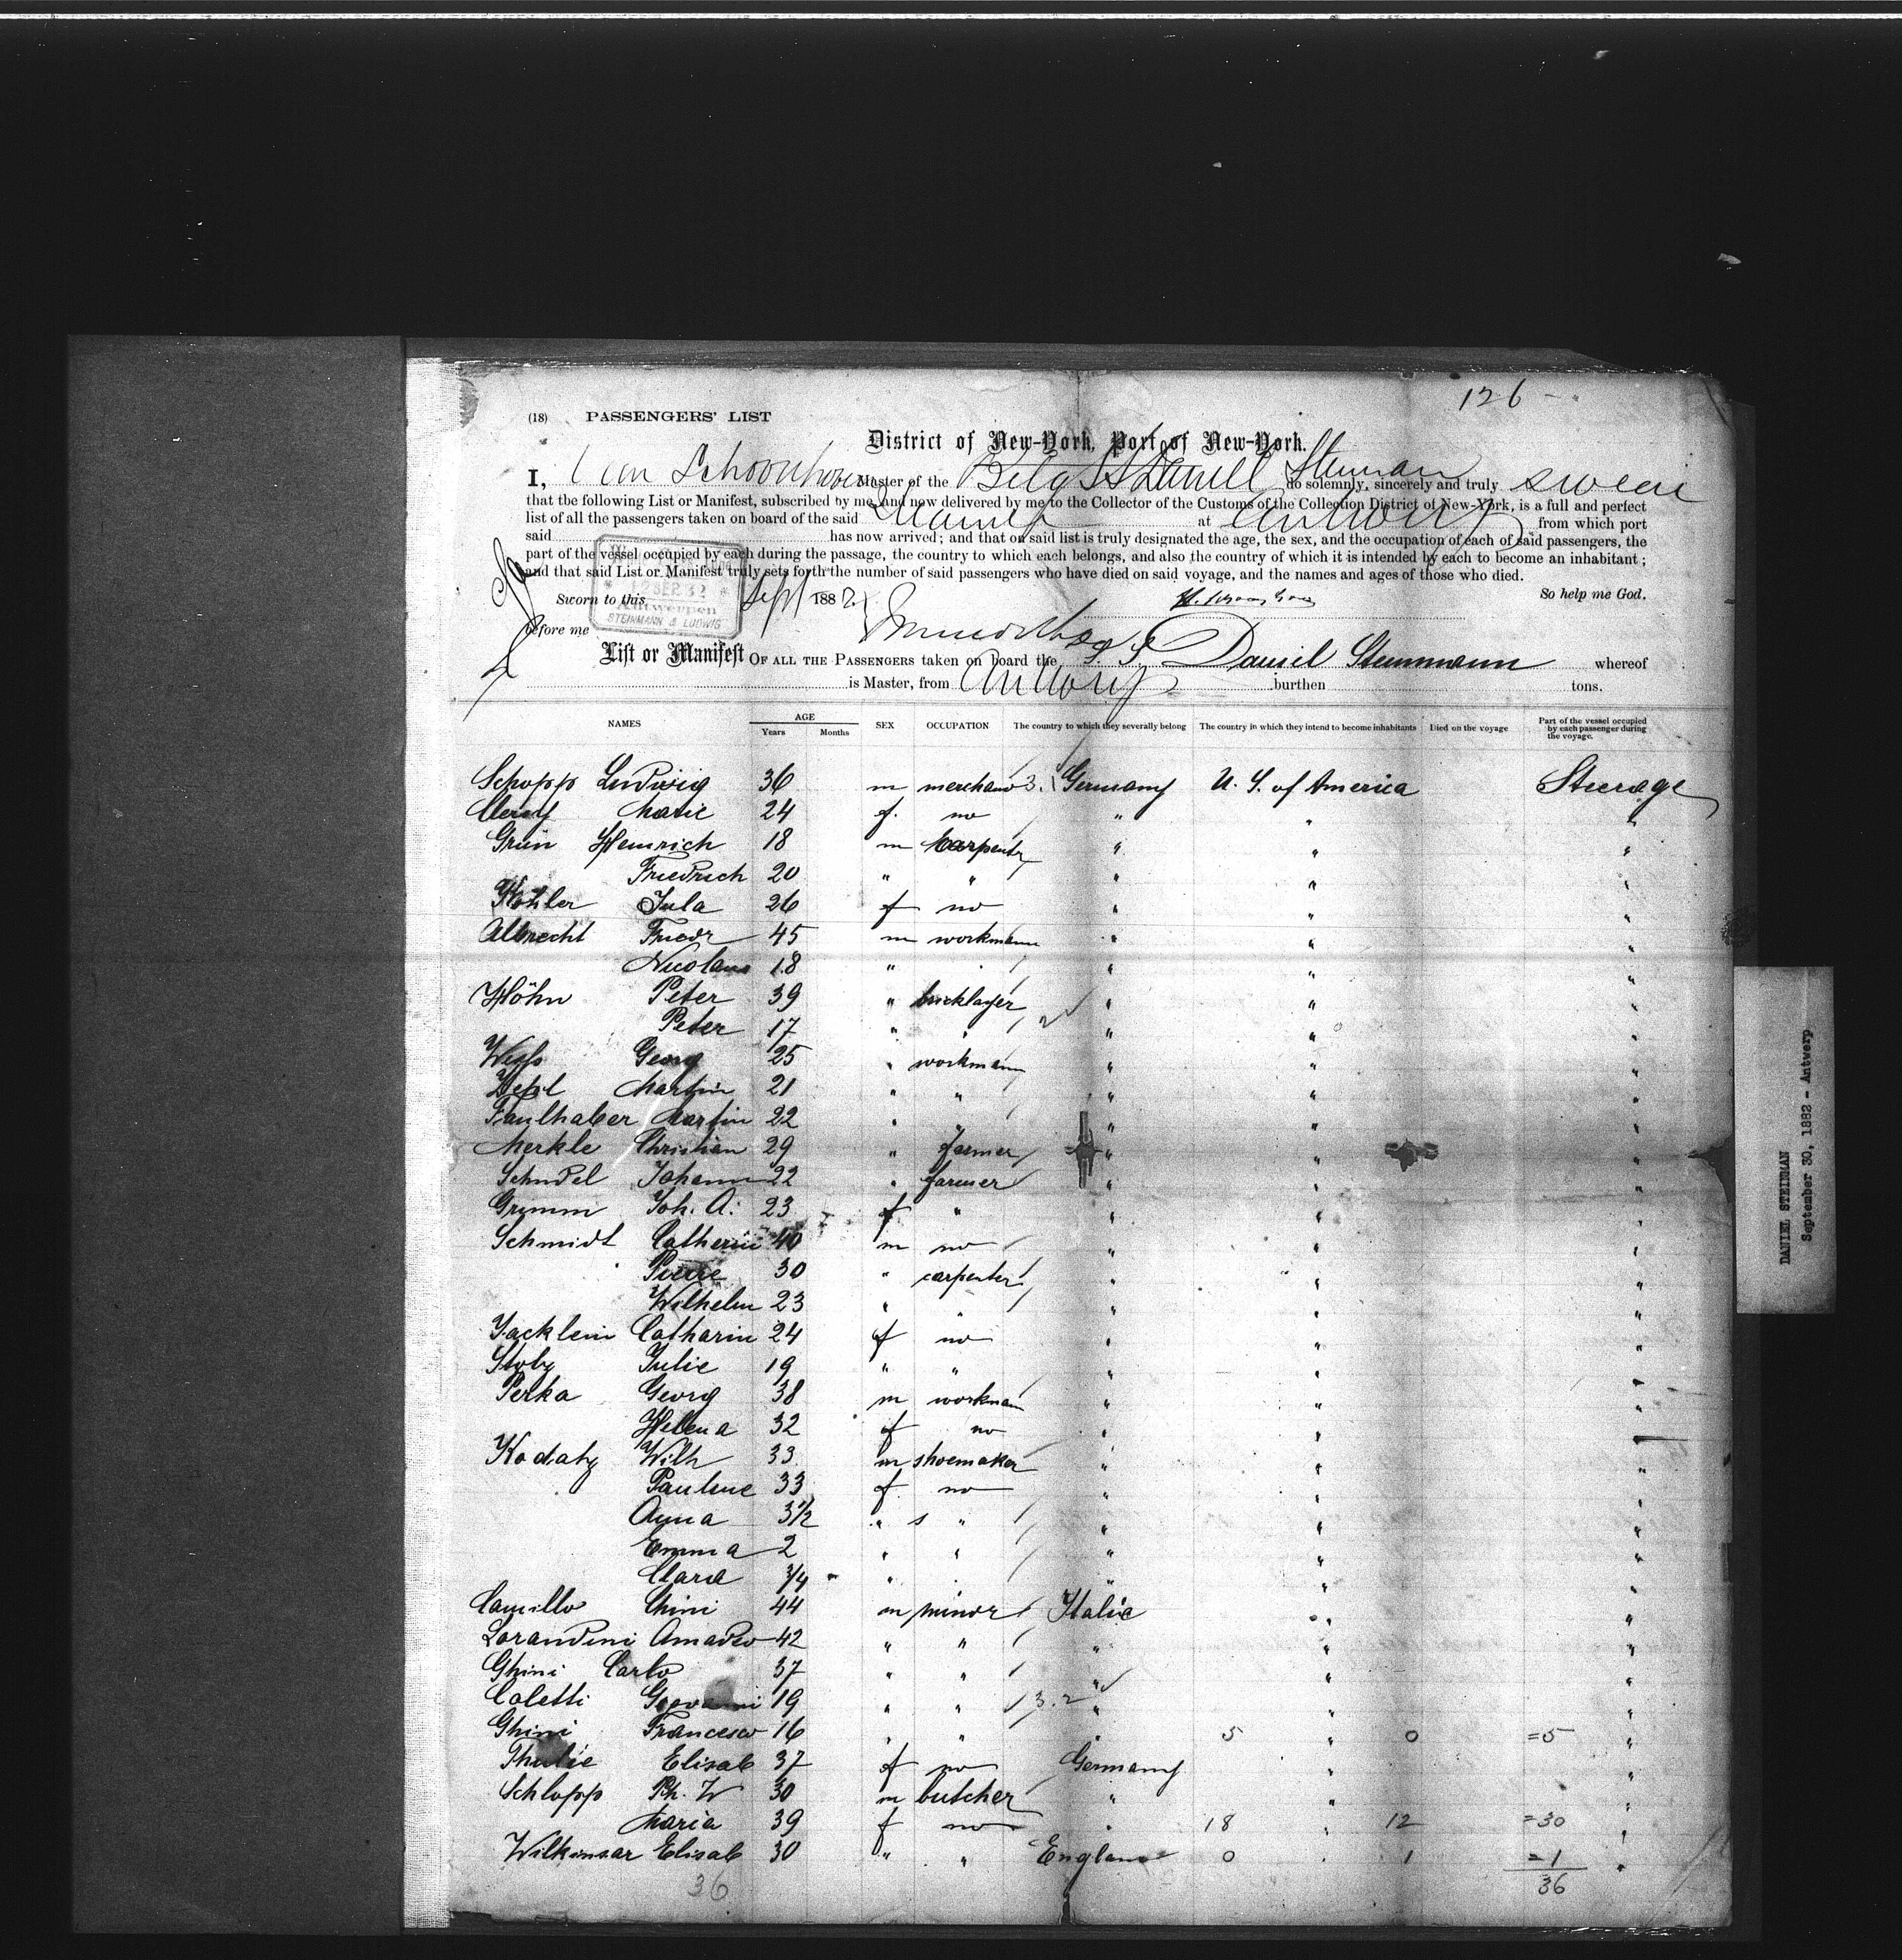 126
(18) PASSENGERS' LIST
District of New-York, Port of New-York.
I, Van Schoonhoven Master of the Belg SS Daniell Steinman do solemnly, sincerely and truly swear
that the following List or Manifest, subscribed by me, and now delivered by me to the Collector of the Customs of the Collection District of New-York, is a full and perfect
list of all the passengers taken on board of the said Steamer at Antwerp from which port
said has now arrived; and that on said list is truly designated the age, the sex, and the occupation of each of said passengers, the
part of the vessel occupied by each during the passage, the country to which each belongs, and also the country of which it is intended by each to become an inhabitant;
and that said List or Manifest truly sets forth the number of said passengers who have died on said voyage, and the names and ages of those who died.
Sworn to this Sept 1882. So help me God.
Antwerpen
STEINMANN & LUDWIG
before me
List or Manifest OF ALL THE PASSENGERS taken on board the S. S. Daniel Steinmann whereof
is Master, from Antwerp burthen tons.
NAMES AGE Years Months SEX OCCUPATION The country to which they severally belong The country in which they intend to become inhabitants Died on the voyage Part of the vessel occupied by each passenger during the voyage.
Schopp Ludwig 36 m merchand 3. Germany U. S. of America Steerage
Marie 24 f. no " " "
Grün Heinrich 18 m carpentr " " "
Friedrich 20 " " " " "
Köhler Jula 26 f no " " "
Albrecht Friedr 45 m workmann " " "
Nicolaus 18 " " " " "
Höhn Peter 39 " bricklayer " " "
Peter 17 " " 2 " " "
Georg 25 " workmann " " "
Martin 21 " " " " "
Faulhaber Martin 22 " " " " "
Merkle Christian 29 " farmer " " "
Schndel Johann 22 " farmer " " "
Grimm Joh. A. 23 f " " " "
Schmidt Catherin 40 m no " " "
Pierre 30 " carpenter " " "
Wilhelm 23 " " " " "
Jacklein Catharin 24 f no " " "
Julie 19 " " " " "
Perka Georg 38 m workman " " "
Helena 32 f no " " "
Kodaty Wilh 33 m shoemaker " " "
Pauline 33 f no " " "
Anna 3 1/2 " s " " " "
Emma 2 " " " " "
Clara 3/4 " " " " "
Camillo Chini 44 m minor Italie " "
Lorandini Amadeo 42 " " " " "
Ghini Carlo 37 " " " " "
Coletti Giovanni 19 " " 3. 2 " " "
Ghini Francesco 16 " " " 5 " 0 =5 "
Thulie Elisab 37 f no Germany " "
Schlopp Ph. W 30 m butcher " " "
Maria 39 f no " 18 " 12 =30 "
Wilkinsar Elisab 30 " " England 0 " 1 =1 "
36 36
DANIEL STEINMAN
September 30, 1882 - Antwerp